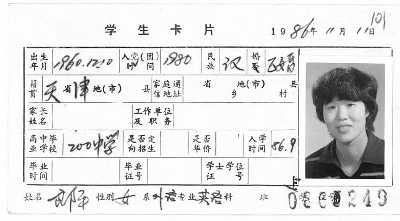 学生卡片 1986年11月11日
出生年月 1960.12.10 入党(团)时间 1980 民族 汉 婚否 已婚
籍贯 天津 省 地(市) 县 家庭通信地址 省 地(市) 县 乡 村
家长姓名 工作单位及职务
高中毕业学校 200中学 是否定向招生 是否华侨 入学时间 86.9
毕业时间 毕业证号 学士学位证号
姓名 性别 女 系 外语 专业 英语 科 班